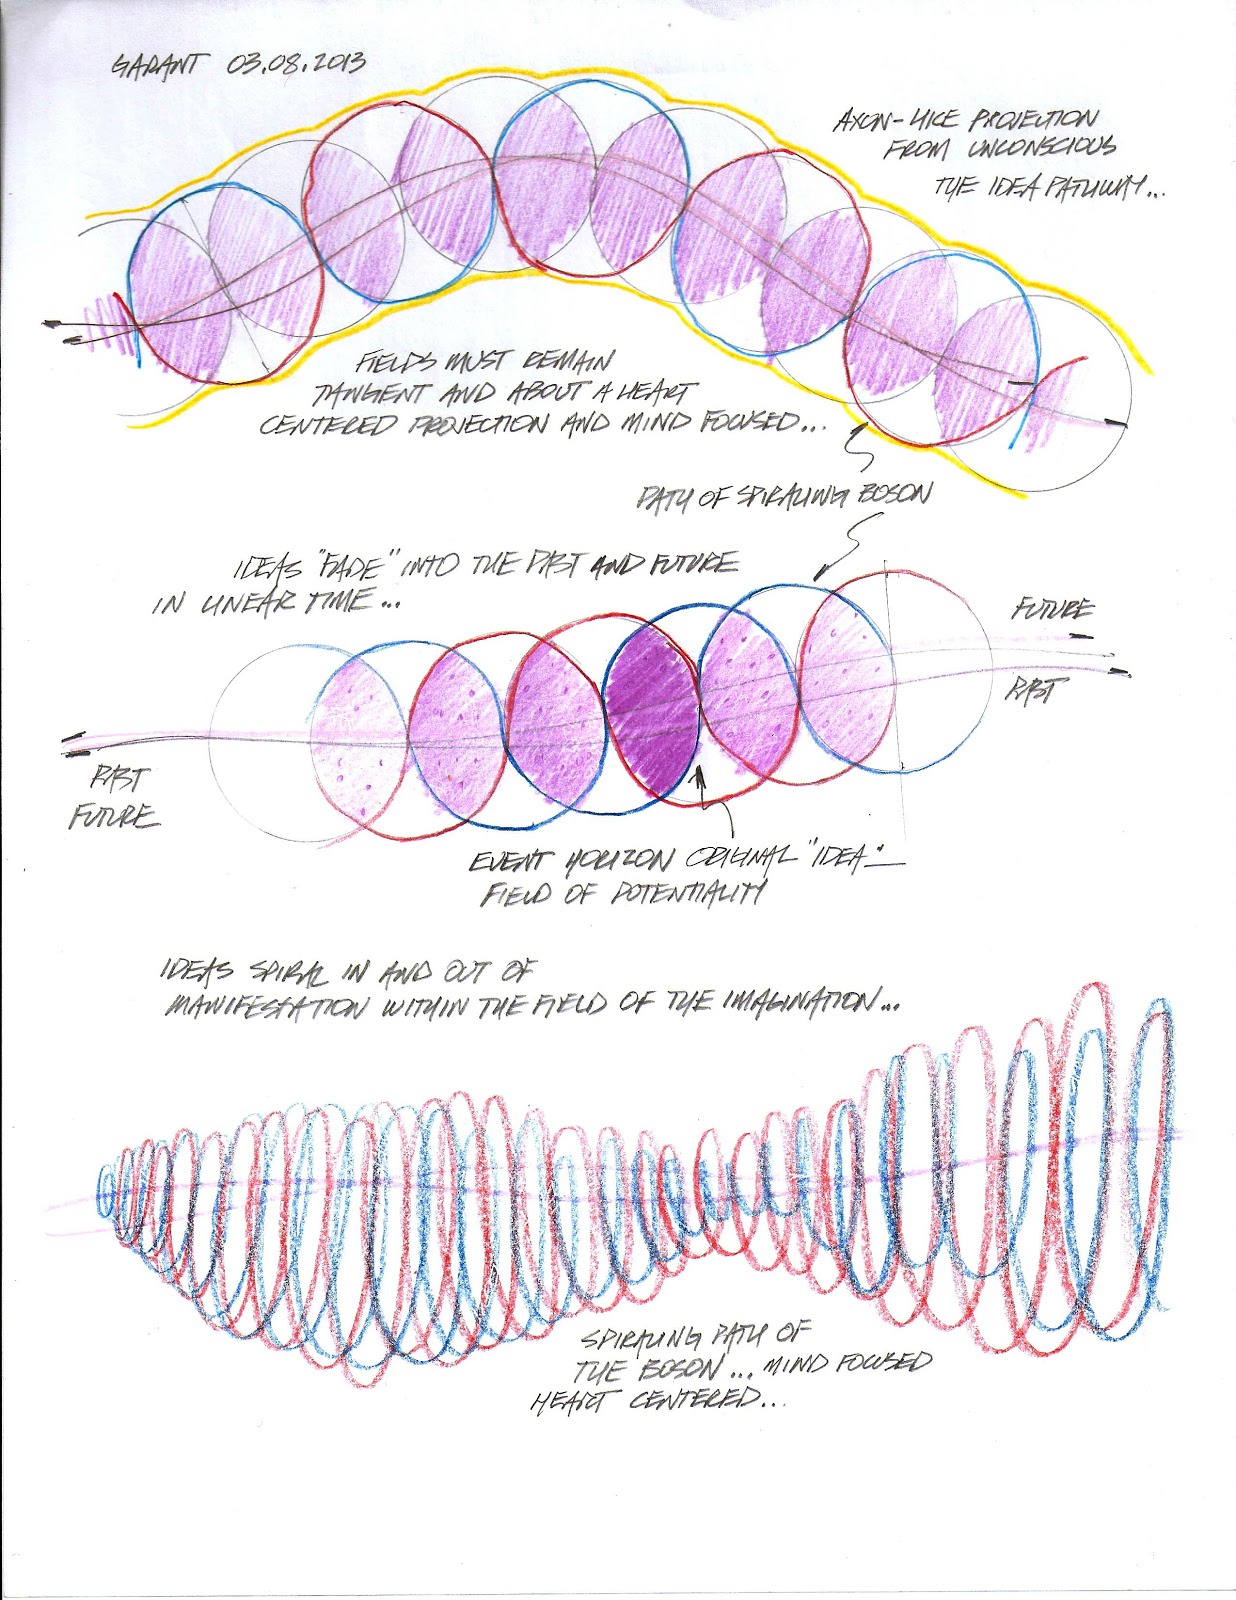 GARANT 03.08.2013
AXON-LIKE PROJECTION
FROM UNCONSCIOUS
THE IDEA PATHWAY...
FIELDS MUST REMAIN
TANGENT AND ABOUT A HEART
CENTERED PROJECTION AND MIND FOCUSED...
PATH OF SPIRALING BOSON
IDEAS "FADE" INTO THE PAST AND FUTURE
IN LINEAR TIME...
FUTURE
PAST
PAST
FUTURE
EVENT HORIZON ORIGINAL "IDEA"
FIELD OF POTENTIALITY
IDEAS SPIRAL IN AND OUT OF
MANIFESTATION WITHIN THE FIELD OF THE IMAGINATION...
SPIRALING PATH OF
THE BOSON... MIND FOCUSED
HEART CENTERED...